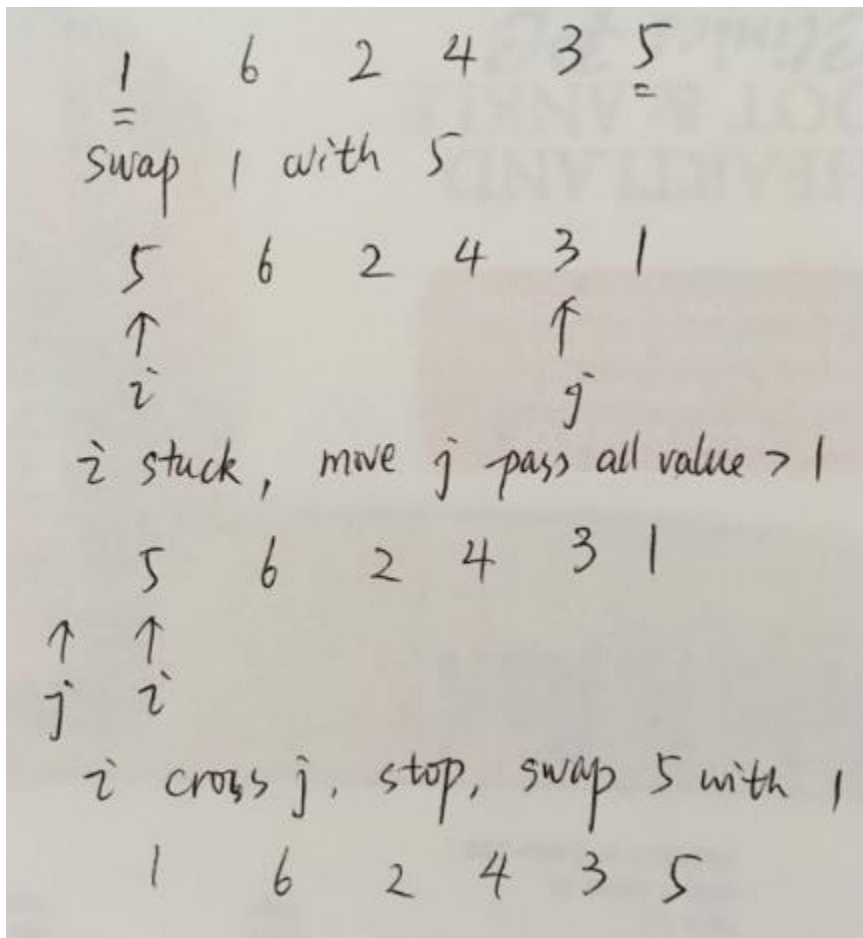 1 6 2 4 3 5
swap 1 with 5
5 6 2 4 3 1
↑ ↑
i j
i stuck, move j pass all value > 1
5 6 2 4 3 1
↑ ↑
j i
i cross j, stop, swap 5 with 1
1 6 2 4 3 5